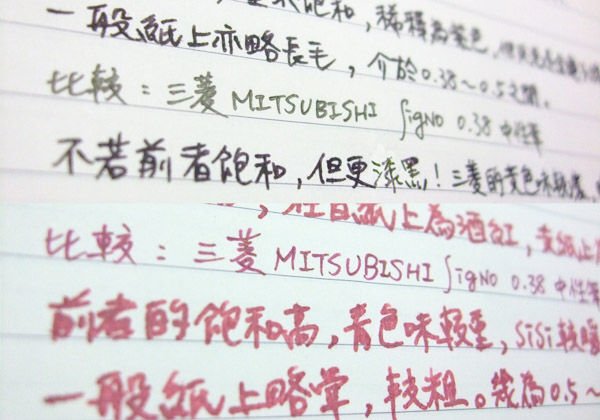 飽和，稀釋為紫色，
一般紙上亦略長毛，介於0.38～0.5之間。
比較：三菱 MITSUBISHI SigNO 0.38 中性筆
不若前者飽和，但更漆黑！三菱的黃色味較重、
，在白紙上為酒紅，黃紙上
比較：三菱 MITSUBISHI SigNO 0.38 中性筆
前者的飽和高，青色味頗重，SiSi較暖
一般紙上略暈，較粗。幾為0.5～